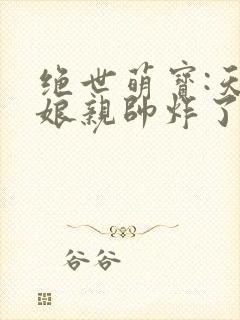 绝世萌宝:天
娘亲帅炸了
谷谷